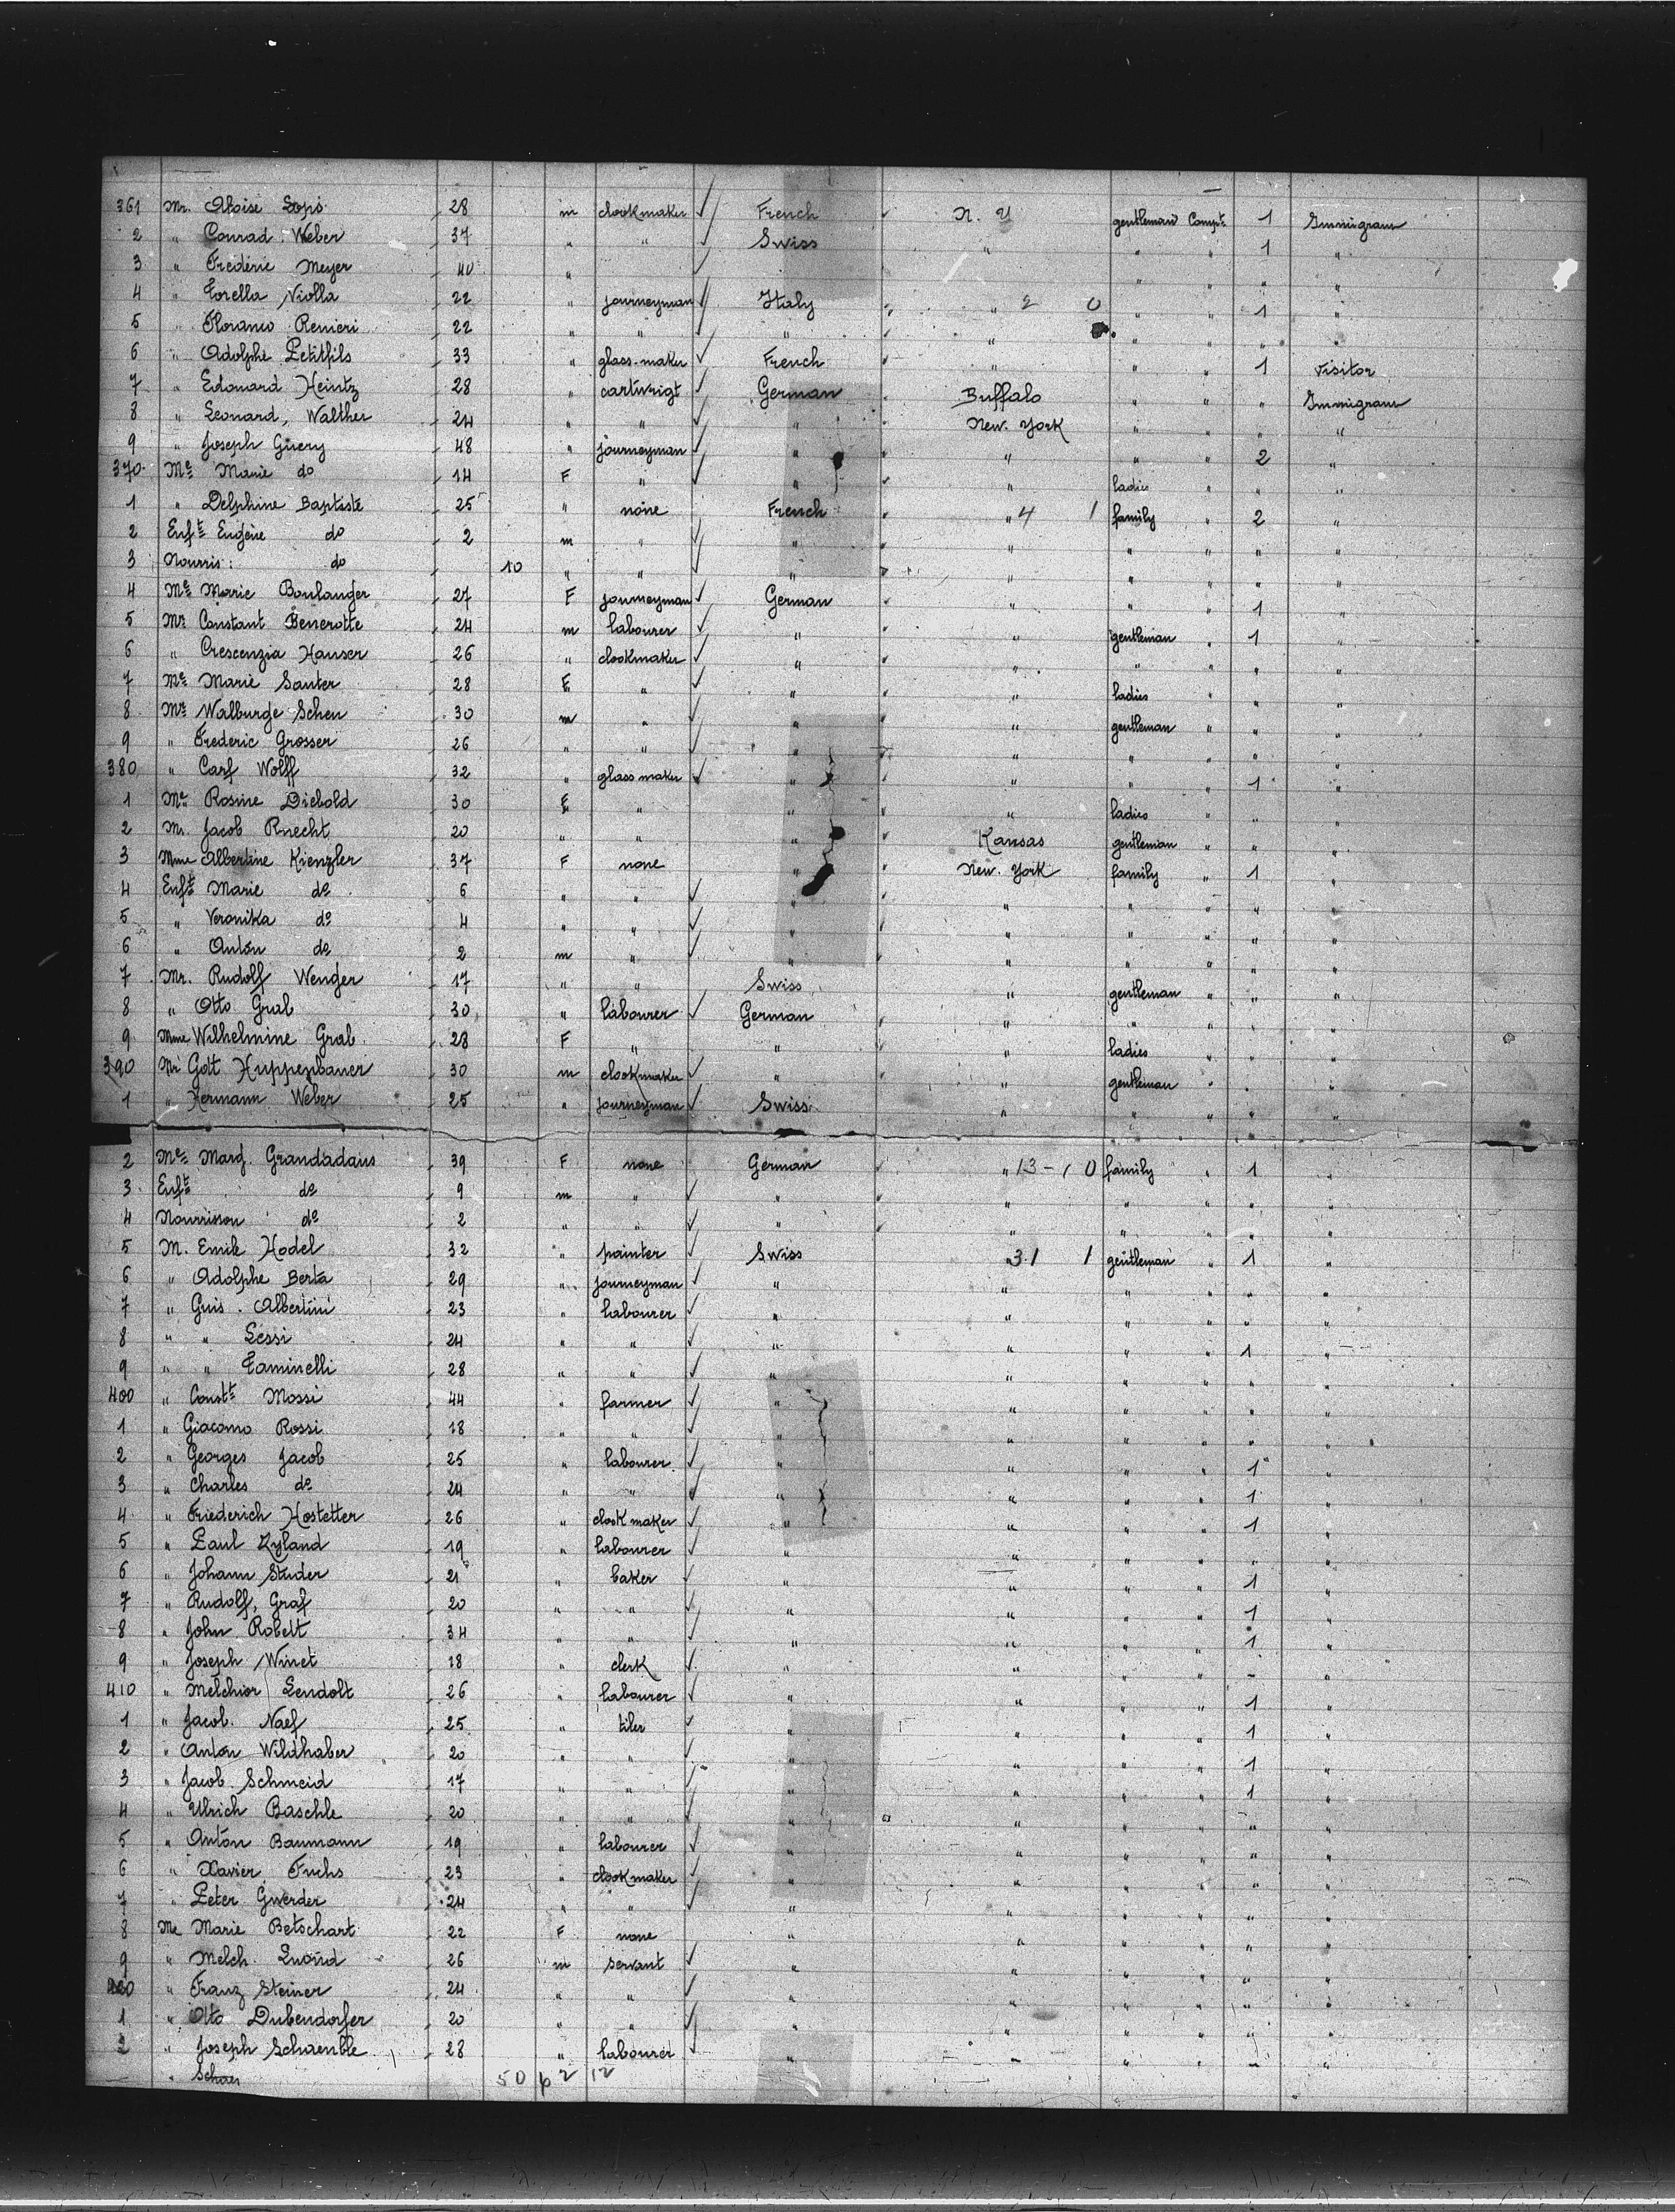 361 Mr. Aloise Sopi 28 m clookmaker French N. Y gentleman Compt. 1 Immigram
2 " Conrad Weber 37 " " Swiss " " " 1 "
3 " Frederic Meyer 40 " " " " "
4 " Torella Violla 22 " journeyman Italy " 2 0 " " 1 "
5 " Floranco Renieri 22 " " " " " " " "
6 " Adolphe Petitfils 33 " glass-maker French " " " 1 Visitor
7 " Edouard Heintz 28 " cartwrigt German Buffalo " " " Immigram
8 " Leonard, Walther 24 " " " New. York " " " "
9 " Joseph Guery 48 " journeyman " " " " 2 "
370 Me Marie do 14 F " " " ladies " " "
1 " Delphine Baptiste 25 " none French " 4 1 family " 2 "
2 Enft Eugène do 2 m " " " " " " "
3 Nourris: do 10 " " " " " " " "
4 Me Marie Boulanger 27 F journeyman German " " " 1 "
5 Mr Constant Benerotte 24 m labourer " " gentleman " 1 "
6 " Crescenzia Hauser 26 " clookmaker " " " " " "
7 Me Marie Sauter 28 F " " " ladies " " "
8 Mr Walburge Scheu 30 m " " " gentleman " " "
9 " Frederic Grosser 26 " " " " " " " "
380 " Carf Wolff 32 " glass maker " " " " 1 "
1 Me Rosine Diebold 30 F " " " ladies " " "
2 Mr. Jacob Knecht 20 " " " Kansas gentleman " " "
3 Mme Albertine Kienzler 37 F none " New. York family " 1 "
4 Enfts Marie do 6 " " " " " " " "
5 " Veronika do 4 " " " " " " " "
6 " Anton do 2 m " " " " " " "
7 Mr. Rudolf Wenger 17 " " Swiss " gentleman " " "
8 " Otto Grab 30 " labourer German " " " " "
9 Mme Wilhelmine Grab 28 F " " " ladies " " "
390 Mr Gott Huppenbauer 30 m clookmaker " " gentleman " " "
1 " Hermann Weber 25 " journeyman Swiss " " " " "
2 Me Marg. Grandadans 39 F none German " 13 - 1 0 family " 1 "
3 Enft do 9 m " " " " " " "
4 Nourrisson do 2 " " " " " " " "
5 M. Emile Hodel 32 " painter Swiss " 3.1 1 gentleman " 1 "
6 " Adolphe Berta 29 " journeyman " " " " " "
7 " Guis. Albertini 23 " labourer " " " " " "
8 " " Lessi 24 " " " " " " 1 "
9 " " Taminelli 28 " " " " " " " "
400 " Constt Mossi 44 " farmer " " " " " "
1 " Giacomo Rossi 18 " " " " " " " "
2 " Georges Jacob 25 " labourer " " " " 1 "
3 " Charles do 24 " " " " " " 1 "
4 " Friederich Hostetter 26 " clook maker " " " " 1 "
5 " Paul Ryland 19 " labourer " " " " " "
6 " Johann Studer 21 " baker " " " " 1 "
7 " Rudolf, Graf 20 " " " " " " 1 "
8 " John Robelt 34 " " " " " " 1 "
9 " Joseph Winet 18 " clerk " " " " - "
410 " Melchior Lendolt 26 " labourer " " " " 1 "
1 " Jacob. Naef 25 " tiler " " " " 1 "
2 " Anton Wildhaber 20 " " " " " " 1 "
3 " Jacob. Schmeid 17 " " " " " " 1 "
4 " Ulrich Baschle 20 " " " " " " " "
5 " Anton Baumann 19 " labourer " " " " " "
6 " Xavier Fuchs 23 " clookmaker " " " " " "
7 " Peter Gwerder 24 " " " " " " " "
8 Me Marie Betschart 22 F none " " " " " "
9 " Melch. 26 m servant " " " " " "
420 " Franz Steiner 24 " " " " " " " "
1 " Otto Dubendorfer 20 " " " " " " " "
2 " Joseph Schaenble 28 " labourer " " " " " "
" Schae
50 62 12